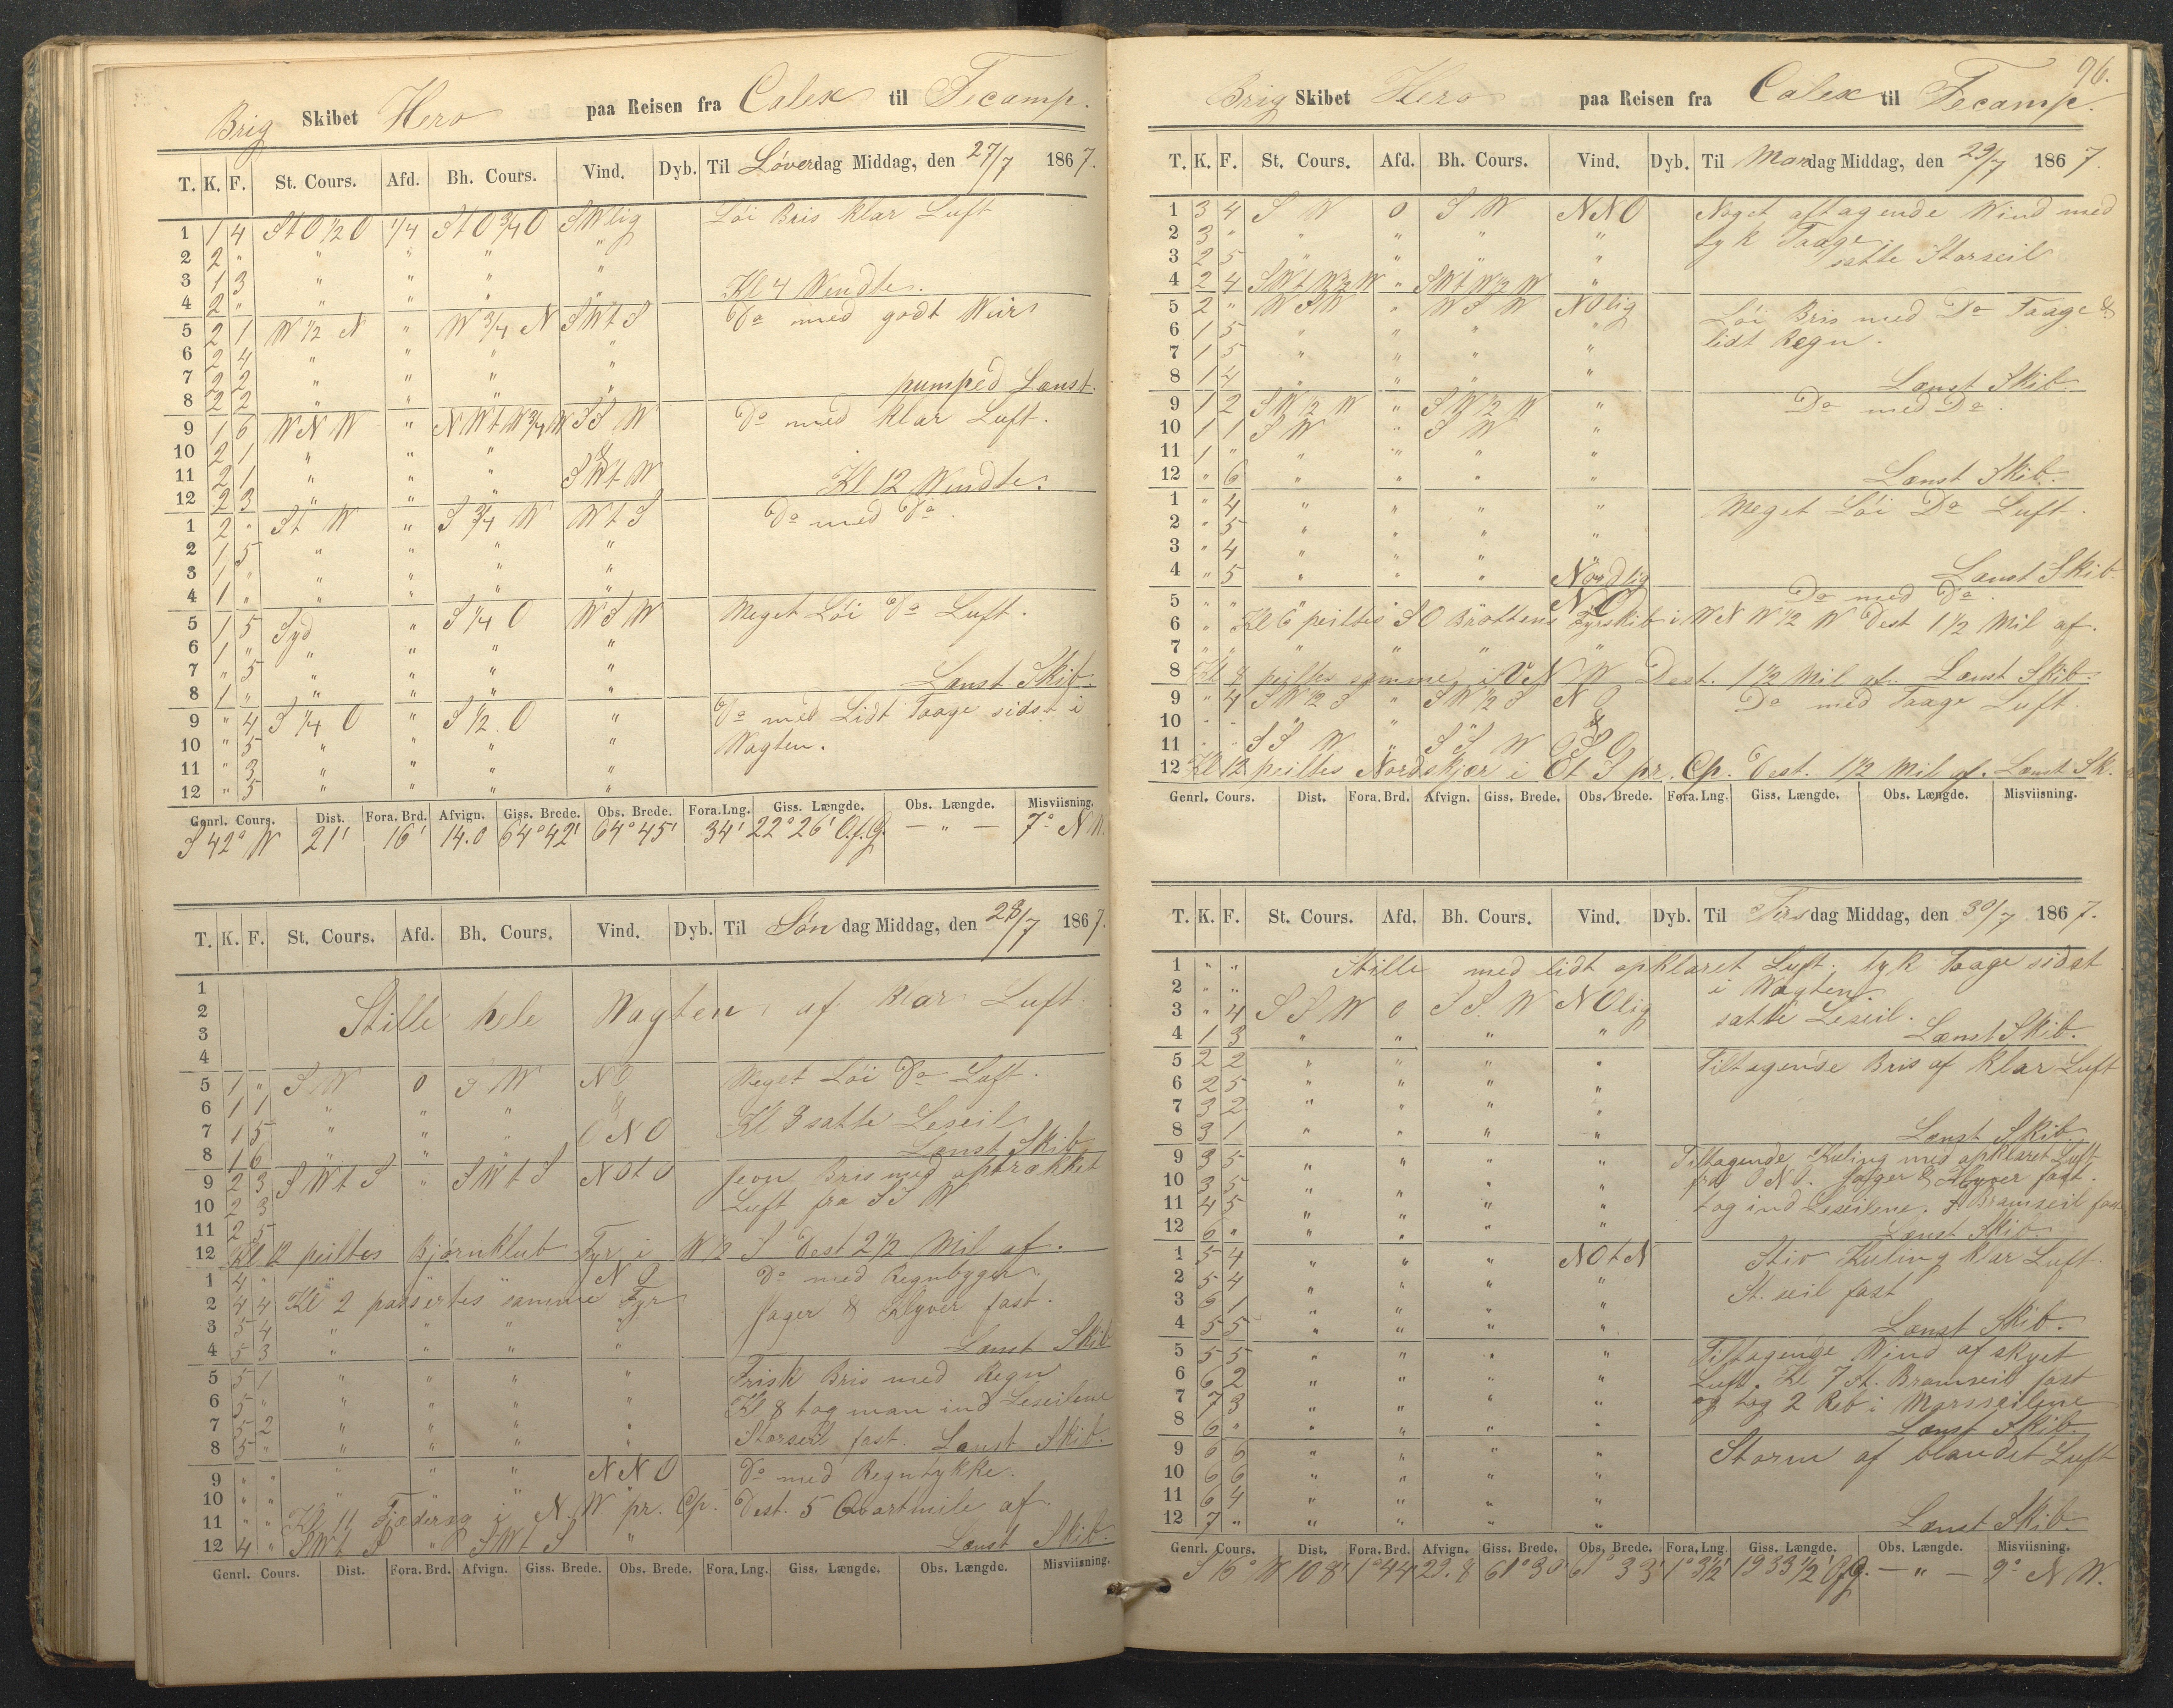 Brig Skibet Hero paa Reisen fra Calex til Fecamp.
T. K. F. St. Cours. Afd. Bh. Cours. Vind. Dyb. Til Löverdag Middag, den 27/7 1867.
1 1 4 St O 1/2 O 1/4 St O 3/4 O SWlig Löi Bris klar Luft
2 2 " " " " "
3 1 3 " " " "
4 2 " " " " " Kl 4 Wendte.
5 2 1 W 1/2 N " W 3/4 N SWt S Do med godt Weir
6 2 4 " " " "
7 2 2 " " " "
8 2 2 " " " " pumped Lænst.
9 1 6 WNW " NWt W 3/4 W SSW Do med klar Luft.
10 2 1 " " " &
11 2 1 " " " SWt W
12 2 3 " " " Kl 12 Wendte.
1 2 " St W " S 3/4 W Wt S Do med Do.
2 1 5 " " " "
3 1 " " " " "
4 1 " " " " "
5 1 5 Syd " S 1/4 O WSW Meget Löi Do Luft.
6 1 " " " " "
7 " 5 " " " "
8 1 " " " " " Lænst Skib.
9 " 4 S 1/4 O " S 1/2 O " Do med Lidt Taage sidst i
10 " 5 " " " " Wagten.
11 " 3 " " " "
12 " 5 " " " "
Genrl. Cours. Dist. Fora. Brd. Afvign. Giss. Brede. Obs. Brede. Fora. Lng. Giss. Længde. Obs. Længde. Misviisning.
S 42° W 21' 16' 14.0 64°42' 64°45' 34' 22°26' O.f.G. — " — 7° N W.
T. K. F. St. Cours. Afd. Bh. Cours. Vind. Dyb. Til Söndag Middag, den 28/7 1867.
1
2 Stille hele Wagten af klar Luft
3
4
5 1 " SW 0 SW NO Meget Löi Do Luft.
6 1 1 " " " &
7 1 5 " " " ONO Kl 8 satte Leseil
8 1 6 " " Lænst Skib
9 2 3 SWt S " SWt S NOt O Jevn Bris med optrækket
10 2 3 Luft fra SSW
11 2 5
12 Kl 12 peiltes Bjørnklub Fyr i W 1/2 S Dest 2 1/2 Mil af.
1 4 " " " " NO Do med Regnbyger
2 4 4 Kl 2 passertes samme Fyr Jager & Klyver fast.
3 5 4 " " " "
4 5 3 " " " " Lænst Skib
5 5 1 " " " " Frisk Bris med Regn
6 5 " " " " " Kl 8 tog man ind Leseilene
7 5 2 " " " "
8 5 " " " " " Storseil fast. Lænst Skib.
9 " " " " " NNO Do med Regntykke.
10 " " " " "
11 " " Kl 11 Fjæderæg i N.W. pr. Cp. Dest. 5 Qvartmile af.
12 4 " SWt S " SWt S " Lænst Skib.
Genrl. Cours. Dist. Fora. Brd. Afvign. Giss. Brede. Obs. Brede. Fora. Lng. Giss. Længde. Obs. Længde. Misviisning.
96.
Brig Skibet Hero paa Reisen fra Calex til Fecamp.
T. K. F. St. Cours. Afd. Bh. Cours. Vind. Dyb. Til Mandag Middag, den 29/7 1867.
1 3 4 SW 0 SW NNO Noget aftagende Wind med
2 3 " " " " " tyk Taage
3 2 5 " " " " satte Storseil
4 2 4 SWt W 3/4 W " SWt W 1/2 W "
5 2 " WSW " WSW NOlig Löi Bris med Do Taage &
6 1 5 " " " " lidt Regn.
7 1 5 " " " "
8 1 4 " " " " Lænst Skib.
9 1 2 SW 1/2 W " SW 1/2 W " Do med Do.
10 1 1 SW " SW "
11 1 " " " " "
12 " 6 " " " " Lænst Skib.
1 " 4 " " " " Meget Löi Do Luft.
2 " 5 " " " "
3 " 4 " " " "
4 " 5 " " " Nordlig Lænst Skib
5 " " " " " NO Do med Do.
6 " Kl 6 peiltes SO Bröttens Fyrskib i WNW 1/2 W Dest 1 1/2 Mil af.
7 " " " " "
8 Kl 8 peiltes samme i VNW Dest. 1 1/2 Mil af. Lænst Skib.
9 " 4 SW 1/2 S " SW 1/2 S NO Do med Taage Luft.
10 " " " " " &
11 " " SSW " SSW OSO
12 Kl 12 peiltes Nordskjær i Ot S pr. Cp. Dest. 1 1/2 Mil af. Lænst Sk.
Genrl. Cours. Dist. Fora. Brd. Afvign. Giss. Brede. Obs. Brede. Fora. Lng. Giss. Længde. Obs. Længde. Misviisning.
T. K. F. St. Cours. Afd. Bh. Cours. Vind. Dyb. Til Tirsdag Middag, den 30/7 1867.
1 " " Stille med lidt opklaret Luft. tyk Taage sidst
2 " " i Wagten.
3 " 4 SSW 0 SSW NOlig satte Leseil.
4 1 3 " " " " Lænst Skib.
5 2 2 " " " " Tiltagende Bris af klar Luft
6 2 5 " " " "
7 3 2 " " " "
8 3 1 " " " " Lænst Skib
9 3 5 " " " " Tiltagende Kuling med opklaret Luft
10 3 5 " " " " fra ONO. Jager & Klyver fast.
11 4 5 " " " " tog ind Leseilene. Bramseil fast
12 6 " " " " " Lænst Skib.
1 5 4 " " " NOt N Stiv Kuling klar Luft.
2 5 4 " " " " St. seil fast
3 6 1 " " " "
4 5 5 " " " " Lænst Skib.
5 5 5 " " " " Tiltagende Wind af skyet
6 6 2 " " " " Luft. Kl 7 St. Bramseil fast
7 7 3 " " " " og tog 2 Reb i Mersseilene
8 6 " " " " " Lænst Skib.
9 6 6 " " " " Storm af blandet Luft
10 6 6 " " " "
11 6 4 " " " "
12 7 " " " " " Lænst Skib.
Genrl. Cours. Dist. Fora. Brd. Afvign. Giss. Brede. Obs. Brede. Fora. Lng. Giss. Længde. Obs. Længde. Misviisning.
S 16° W 108' 1°44 29.8 61°30 61°33' 1°3 1/2' 19 33 1/2' O.f.G. — " — 9° N W.